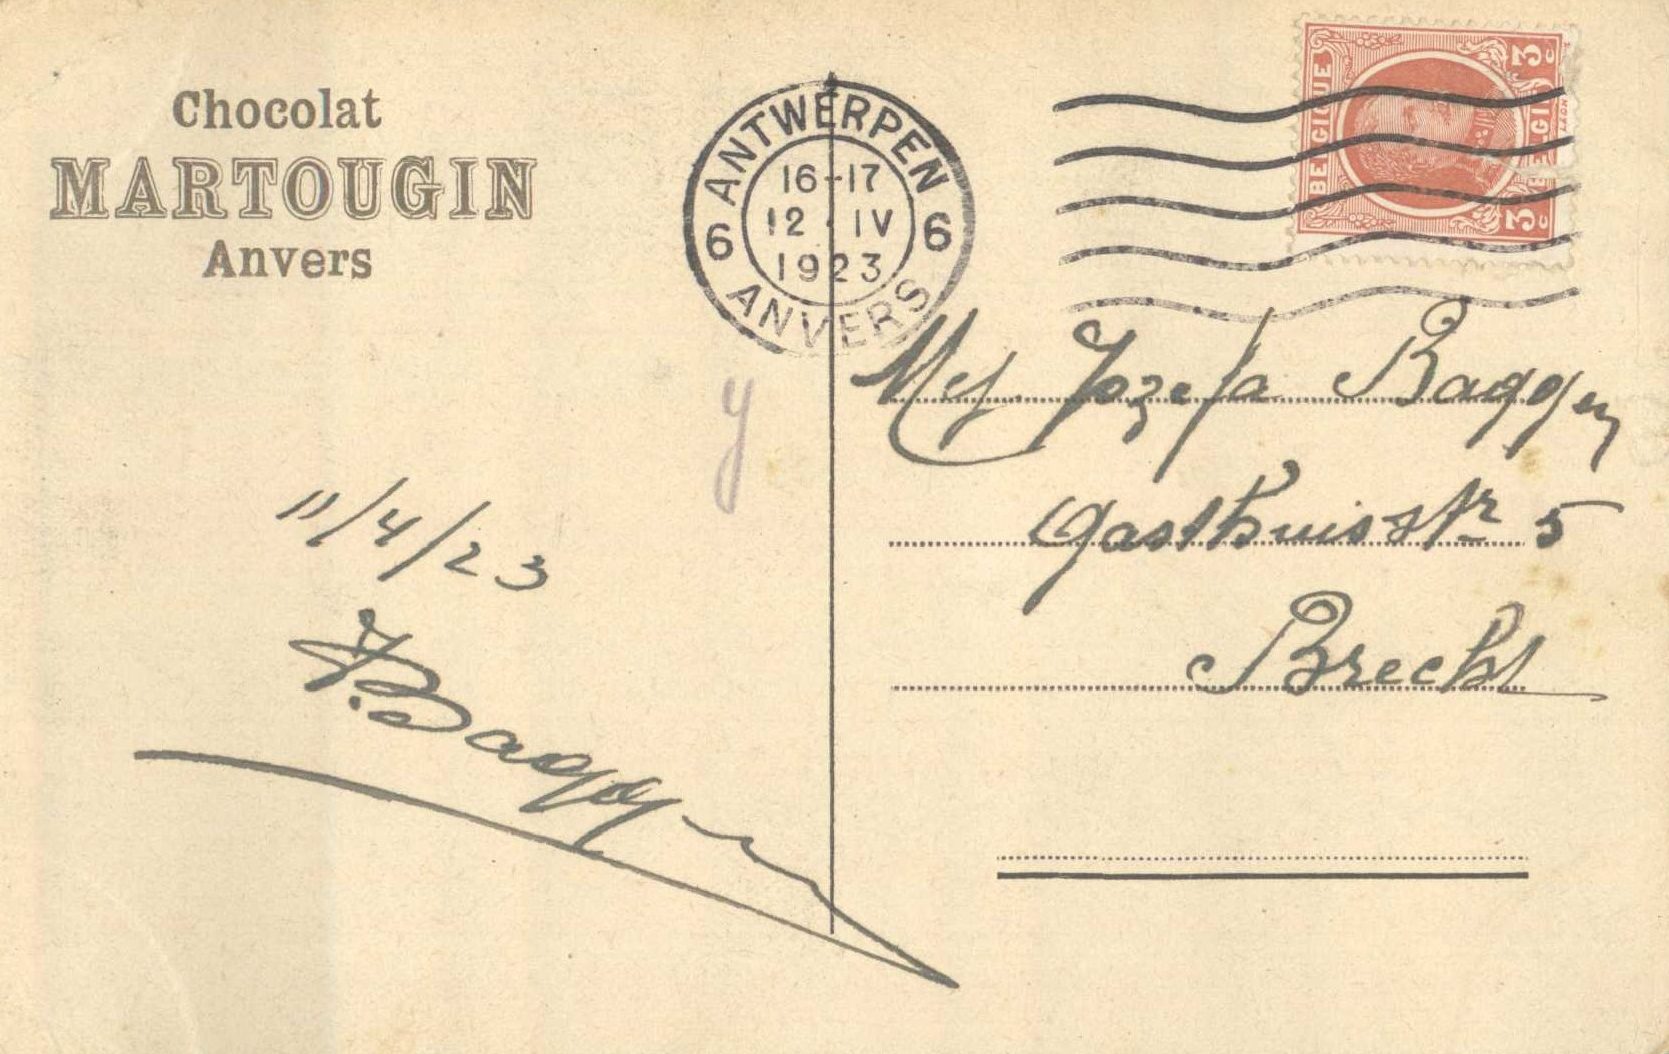 Chocolat
MARTOUGIN
Anvers
ANTWERPEN
16-17
12 · IV
1923
6 6
ANVERS
BELGIQUE
3c
BELGIË
3c
Mej. Jozefa Baggen
Gasthuisstr 5
Brecht
y
11/4/23
Baggen